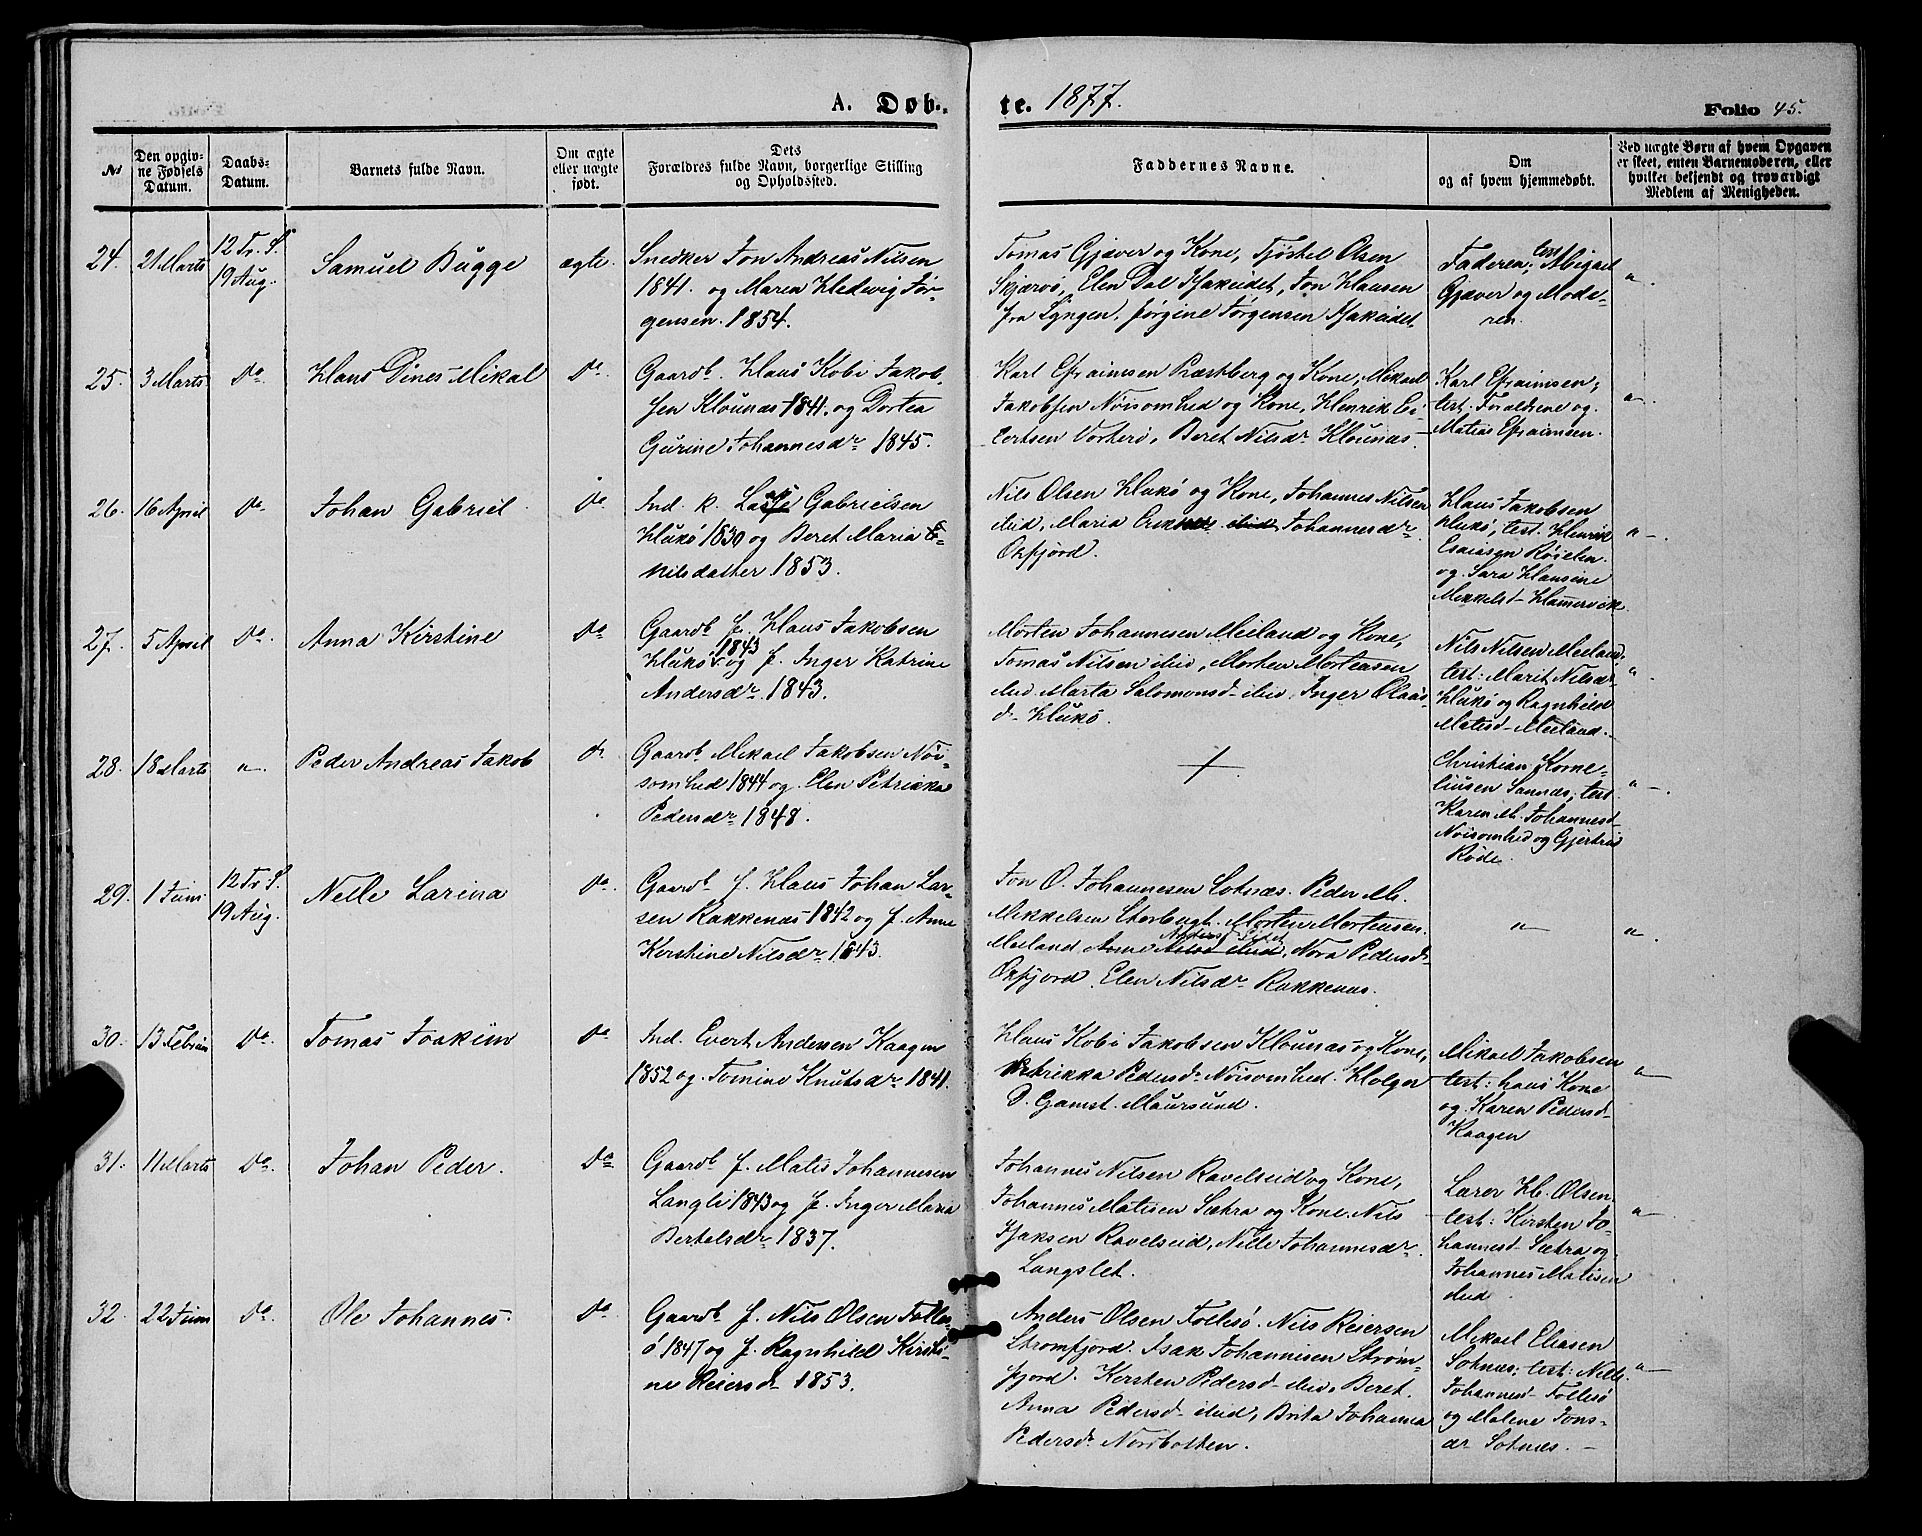 A. Døb-
te. 1877.
Folio 45.
No
Den opgiv-
ne Fødsels
Datum.
Daabs-
Datum.
Barnets fulde Navn.
Om ægte
eller uægte
født.
Dets
Forældres fulde Navn, borgerlige Stilling
og Opholdssted.
Faddernes Navne.
Om
og af hvem hjemmedøbt.
Ved uægte Børn af hvem Opgaven
er skeet, enten Barnemoderen, eller
hvilket bekjendt og troværdigt
Medlem af Menigheden.
24.
21 Marts
12 Tr. S.
19 Aug.
Samuel Bugge
ægte.
Snedker Jon Andreas Nilsen
1841. og Maren Hedevig Jør-
gensen. 1854.
Tomas Gjæver og Kone, Tjøstel Olsen
Skjærvö, Elen Dal Isakeidet, Jon Hansen
fra Lyngen, Jørgine Jørgensen Isakeidet
Faderen; test Abigael
Gjæver og Mode-
ren.
"
25.
3 Marts
Do
Hans Dines Mikal
Do
Gaardb. Hans Kobi Jakob-
sen Klounæs 1841. og Dortea
Gurine Johannesdr 1845.
Karl Efraimsen Præstberg og Kone, Mikael
Jakobsen Nöisomhed og Kone, Henrik Ei-
lertsen Vorterö, Beret Nilsdr Klounæs
Karl Efraimsen;
test. Foraldrene og
Matias Efraimsen.
"
26.
16 April
Do
Johan Gabriel
Do
Ind. k. Lars Gabrielsen
Hukö 1830 og Beret Maria
Nilsdatter 1853.
Nils Olsen Hukö og Kone, Johannes Nilsen
ibid, Maria ibid Johannesdr
Oxfjord.
Hans Jakobsen
Hukö; test. Henrik
Esaiasen Röielen
og Sara Hansine
Mikkelsd Hamervik
"
27.
5 April
Do
Anna Kirstine
Do
Gaardb f. Hans Jakobsen
Hukö 1843 og f. Inger Katrine
Andersdr 1843.
Morten Johannesen Meiland og Kone,
Tomas Nilsen ibid, Morten Mortensen
ibid Marta Salomonsd ibid, Inger Olaus-
dr Hukö.
Nils Nilsen Meiland;
test: Marit Nilsdr
Hukö og Ragnhild
Matisd Meiland.
"
28.
18 Marts
"
Peder Andreas Jakob
do
Gaardb Mikael Jakobsen Nöi-
somhed 1844 og Elen Petrikka
Pedersdr 1848.
+
Christian Korne-
liusen Sannæs; test.
Karen M. Johannesd
Nöisomhed og Gjertrud
Röde.
"
29.
1 Juni
12 Tr. S.
19 Aug.
Nelle Larina
Do
Gaardb f. Hans Johan Lar-
sen Rakkenæs 1842 og f. Anne
Kirstine Nilsdr 1843.
Jon O. Johannesen Sotnæs. Peder M.
Mikkelsen Storbugt. Morten Mortensen
Meiland Anne Nilsd ibid, Nora Pedersd
Oxfjord, Elen Nilsdr Rakkenæs.
"
"
30.
13 Februar
Do
Tomas Joakim
Do
Ind. Evert Andersen Kaagen
1852 og Tomine Knutsdr 1841.
Hans Kobi Jakobsen Klounæs og Kone,
Petrikka Pedersd Nöisomhed. Holger
D. Gamst. Maursund.
Mikael Jakobsen
test: hans Kone
og Karen Pedersd
Kaagen
"
31.
11 Marts
Do
Johan Peder.
Do
Gaardb f. Matis Johannesen
Langli 1843 og f. Inger Maria
Bertelsdr 1837.
Johannes Nilsen Ravelseid og Kone,
Johannes Matisen Sætra og Kone, Nils
Isaksen Ravelseid, Nille Johannesdr
Langslet.
Lærer Hb. Olsen
test: Kirsten Jo-
hannesd Sætra og
Johannes Matisen
ibid
"
32.
22 Juni
Do
Ole Johannes
Do
Gaardb f. Nils Olsen Folles-
ö 1847 og f. Ragnhild Kirsti-
ne Reiersd 1853.
Anders Olsen Follesö. Nils Reiersen
Strömfjord. Isak Johannesen Ström-
fjord. Kirsten Pedersd ibid, Beret.
Anna Pedersd ibid, Brita Johanna
Pedersdr Nordbotten.
Mikael Eliasen
Sotnæs; test: Nille
Johannesd Follesö
og Malene Jons-
dr Sotnæs.
"